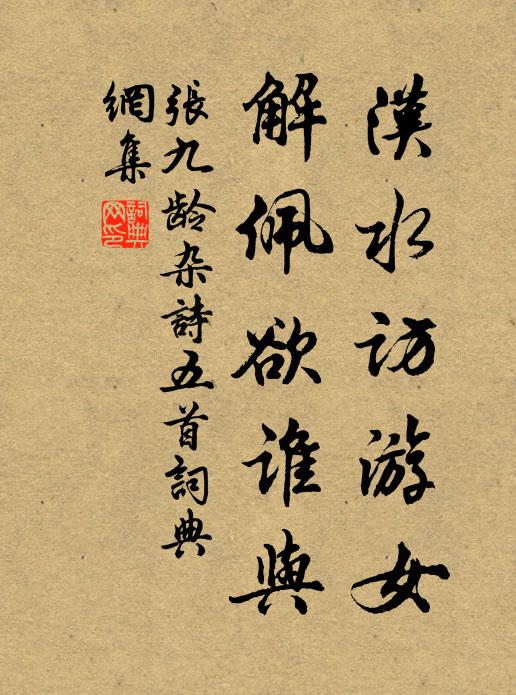 漢水訪游女
解佩欲誰與
張九龄杂詩五首詞典
網集
詞典
网印